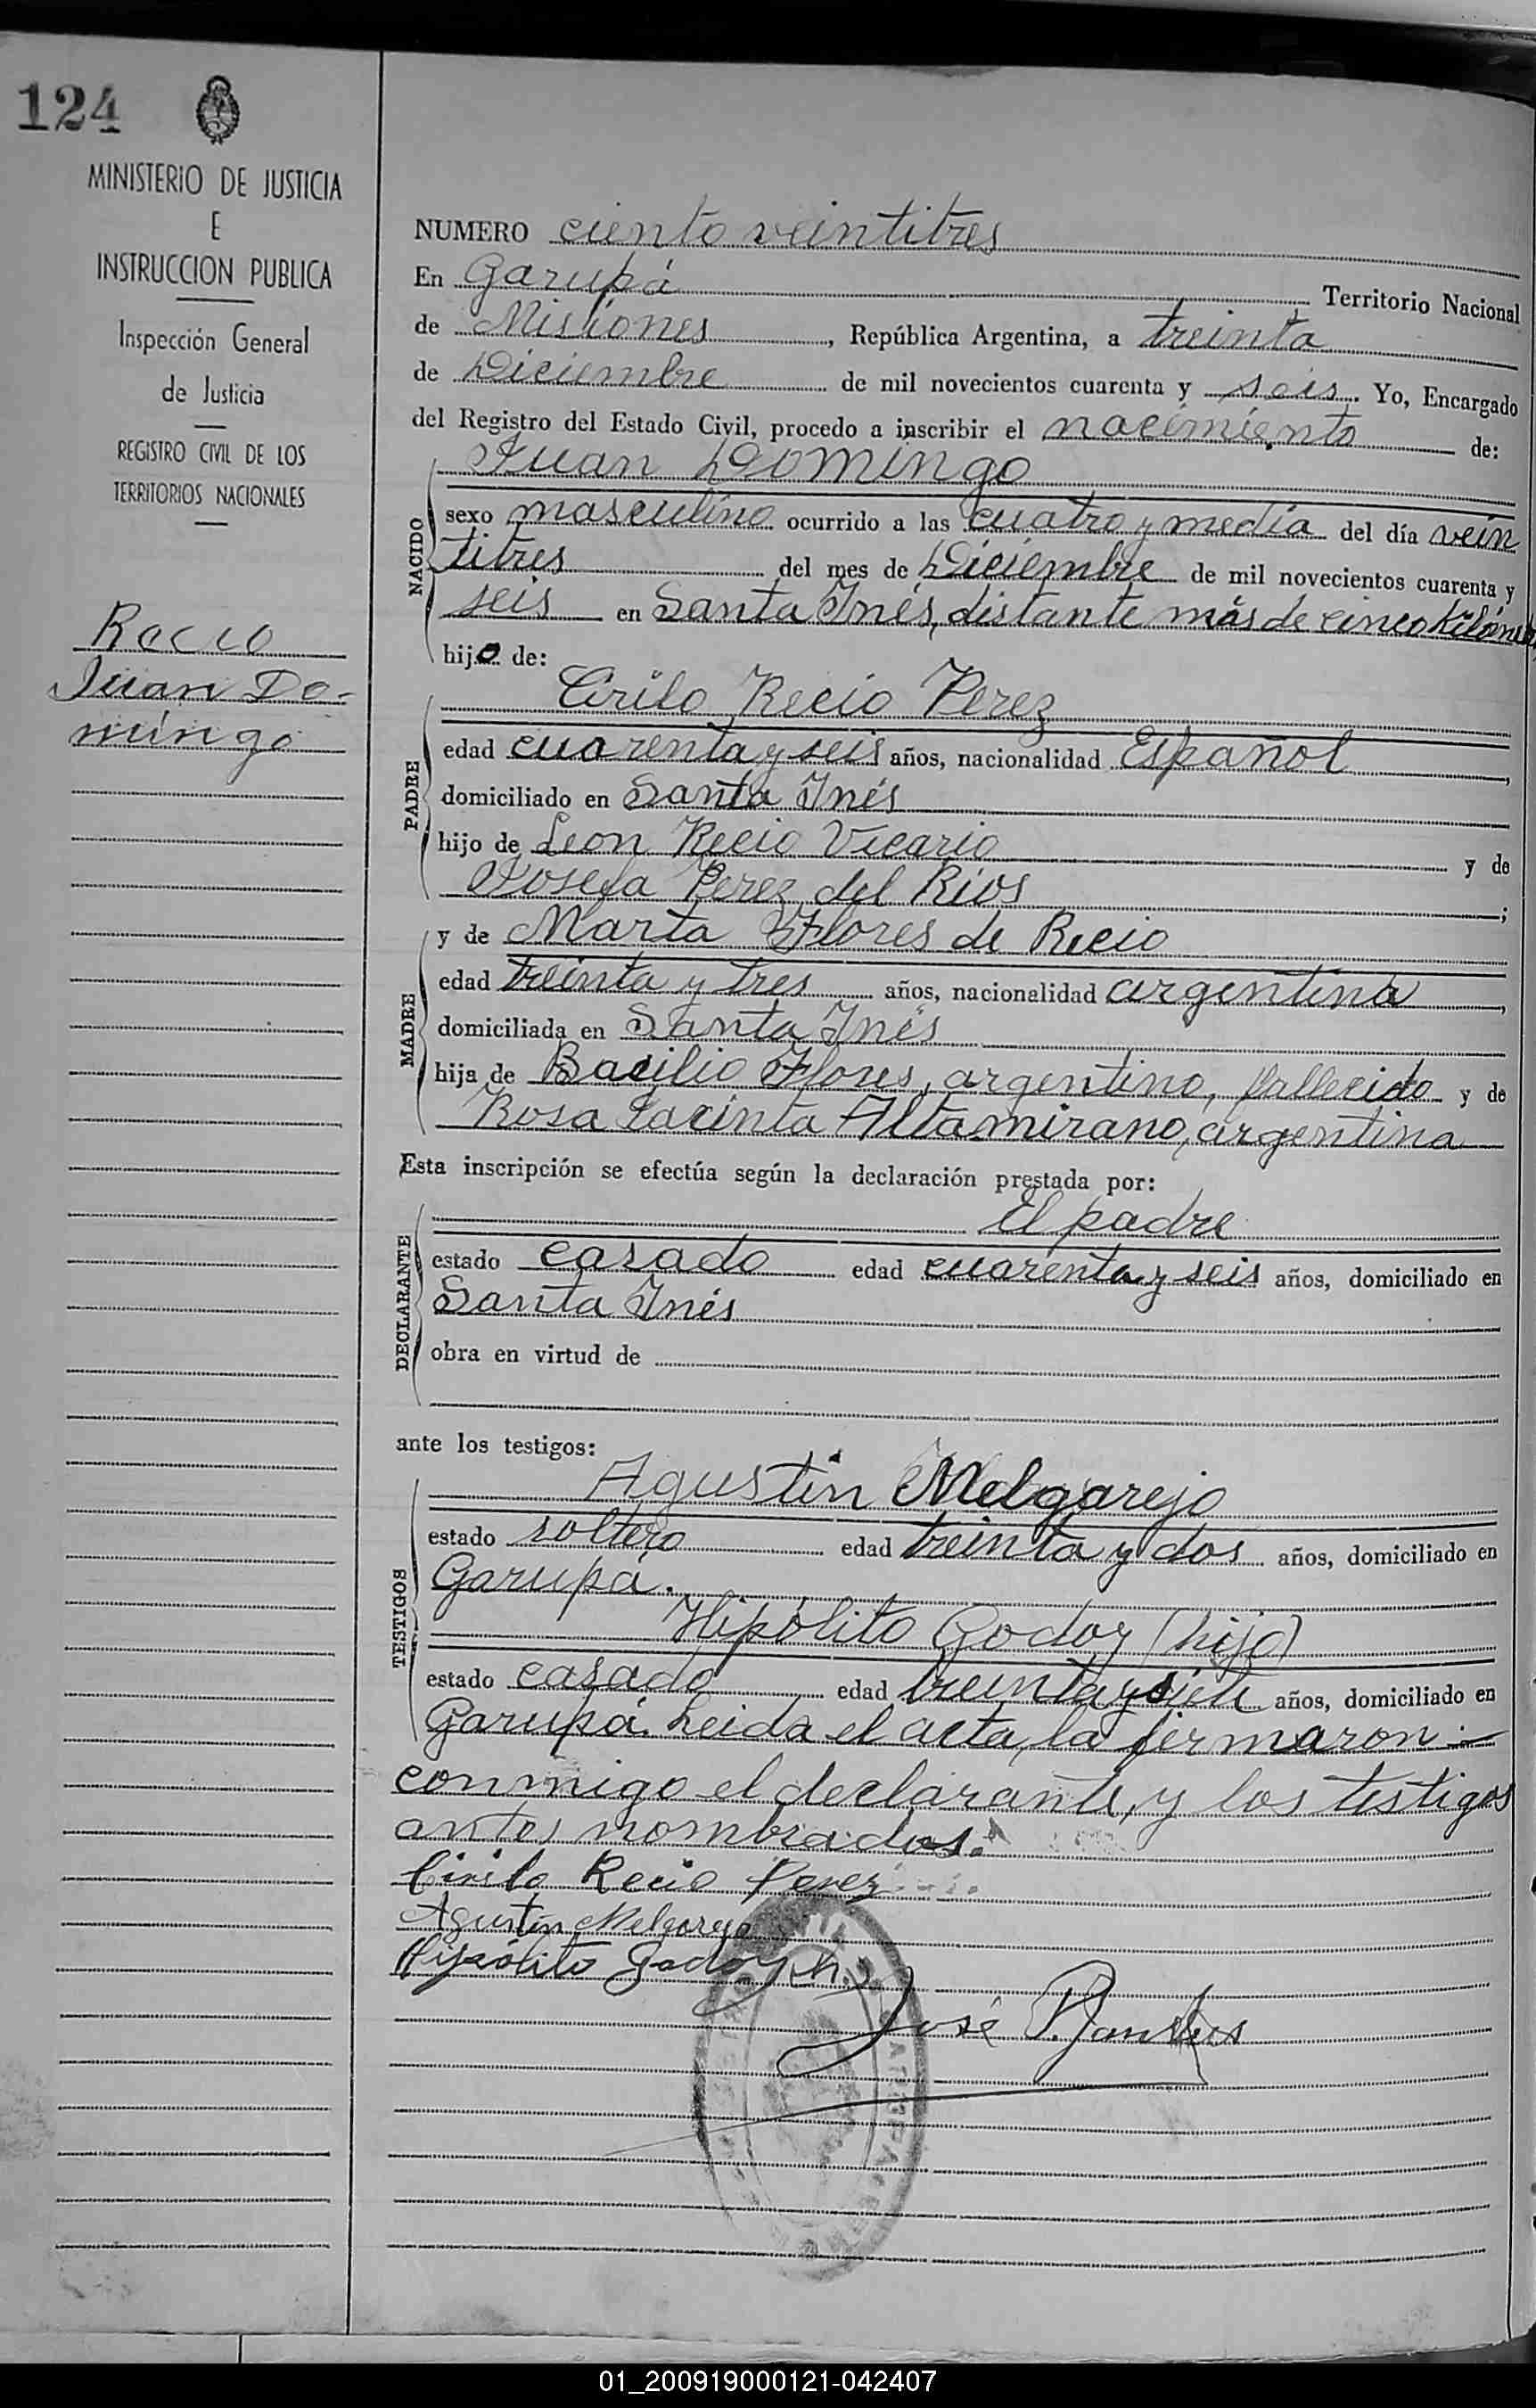 124
MINISTERIO DE JUSTICIA
E
INSTRUCCION PUBLICA
Inspección General
de Justicia
REGISTRO CIVIL DE LOS
TERRITORIOS NACIONALES
Recio
Juan Do-
mingo
NUMERO ciento veintitres
En Garupá Territorio Nacional
de Misiones, República Argentina, a treinta
de Diciembre de mil novecientos cuarenta y seis. Yo, Encargado
del Registro del Estado Civil, procedo a inscribir el nacimiento de:
Juan Domingo
NACIDO
sexo masculino ocurrido a las cuatro y media del día vein
titres del mes de Diciembre de mil novecientos cuarenta y
seis en Santa Inés, distante más de cinco
hijo de:
Cirilo Recio Perez
PADRE
edad cuarenta y seis años, nacionalidad Español,
domiciliado en Santa Inés
hijo de Leon Recio Vicario y de
Josefa Perez del Rios;
MADRE
y de Marta Flores de Recio
edad treinta y tres años, nacionalidad argentina,
domiciliada en Santa Inés
hija de Bacilio Flores, argentino, fallecido y de
Rosa Jacinta Altamirano, argentina
Esta inscripción se efectúa según la declaración prestada por:
El padre
DECLARANTE
estado casado edad cuarenta y seis años, domiciliado en
Santa Inés
obra en virtud de
ante los testigos:
Agustin Melgarejo
TESTIGOS
estado soltero edad treinta y dos años, domiciliado en
Garupá.
Hipólito Godoy (hijo)
estado casado edad treinta y siete años, domiciliado en
Garupá. Leida el acta, la firmaron
conmigo el declarante, y los testigos
antes nombrados.
Cirilo Recio Perez
Agustin Melgarejo
Hipólito Godoy (h.)
José
GARUPA
01_200919000121-042407